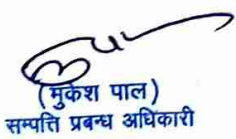 (मुकेश पाल)
सम्पत्ति प्रबन्ध अधिकारी